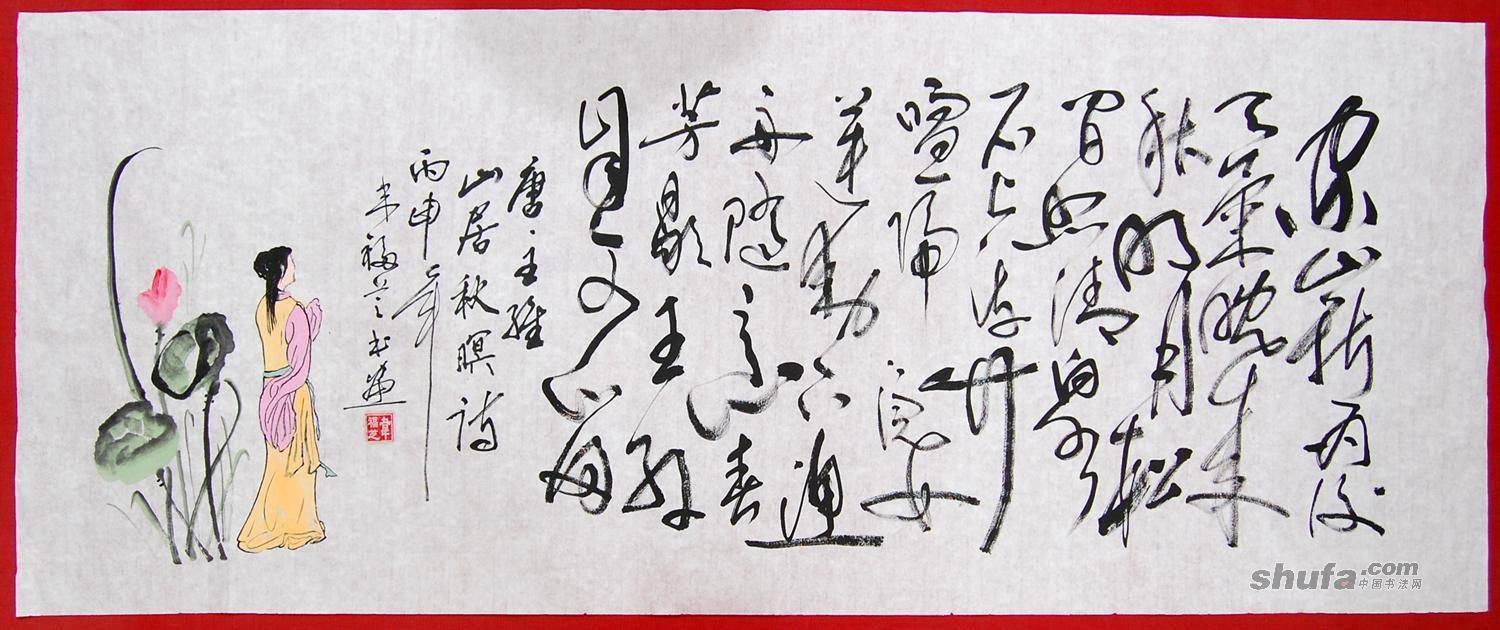 空山新雨後
天氣晚来
秋明月松
间照清泉
石上流竹
喧归浣女
莲动下渔
舟随意春
芳歇王孙
自可留
唐·王维
山居秋暝诗
丙申年
福芝书画
shufa.com
中国书法网